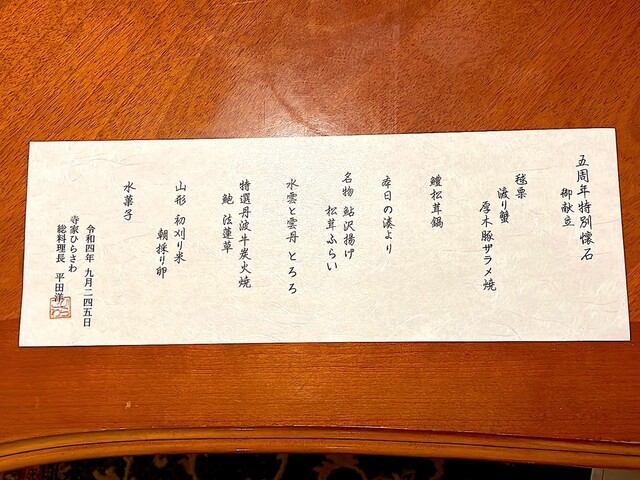 五周年特別懐石
御献立
毬栗
渡り蟹
厚木豚ザラメ焼
鱧松茸鍋
本日の湊より
名物 鮎沢揚げ
松茸ふらい
水雲と雲丹 とろろ
特選丹波牛炭火焼
鮑 法蓮草
山形 初刈り米
朝採り卵
水菓子
令和四年 九月二四五日
寺家ひらさわ
総料理長 平田洋